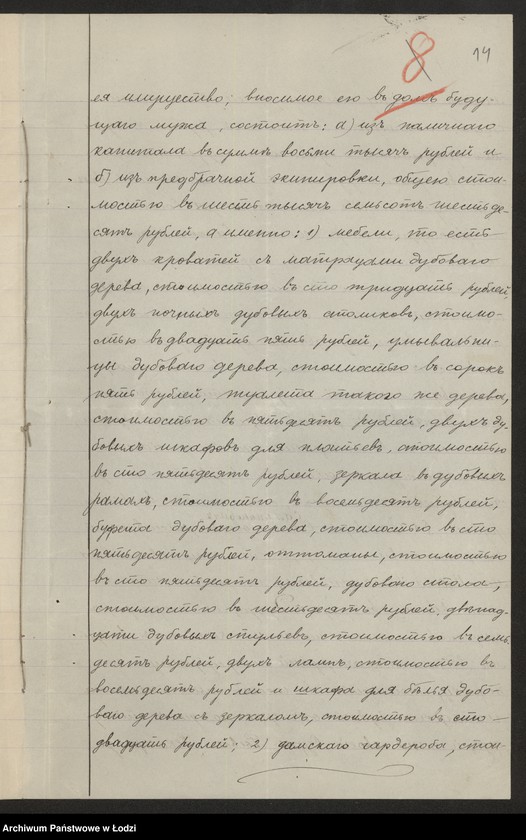 8
14
ея имущество, вносимое ею въ домъ буду-
щаго мужа, состоитъ: а) изъ наличнаго
капитала въ суммѣ восьми тысячъ рублей и
б) изъ предбрачной экипировки, общею стои-
мостью въ шесть тысячъ семьсотъ шестьде-
сятъ рублей, а именно: 1) мебели, то есть
двухъ кроватей съ матрацами дубоваго
дерева, стоимостью въ сто тридцать рублей,
двухъ ночныхъ дубовыхъ столиковъ, стоимо-
стью въ двадцать пять рублей, умывальни-
цы дубоваго дерева, стоимостью въ сорокъ
пять рублей, туалета такого же дерева,
стоимостью въ пятьдесятъ рублей, двухъ ду-
бовыхъ шкафовъ для платьевъ, стоимостью
въ сто пятьдесятъ рублей, зеркала въ дубовыхъ
рамахъ, стоимостью въ восемьдесятъ рублей,
буфета дубоваго дерева, стоимостью въ сто
пятьдесятъ рублей, оттоманы, стоимостью
въ сто пятьдесятъ рублей, дубоваго стола,
стоимостью въ шестьдесятъ рублей, двѣнад-
цати дубовыхъ стульевъ, стоимостью въ семь-
десятъ рублей, двухъ лампъ, стоимостью въ
восемьдесятъ рублей и шкафа для бѣлья дубо-
ваго дерева съ зеркаломъ, стоимостью въ сто
двадцать рублей; 2) дамскаго гардероба, стои-
Archiwum Państwowe w Łodzi